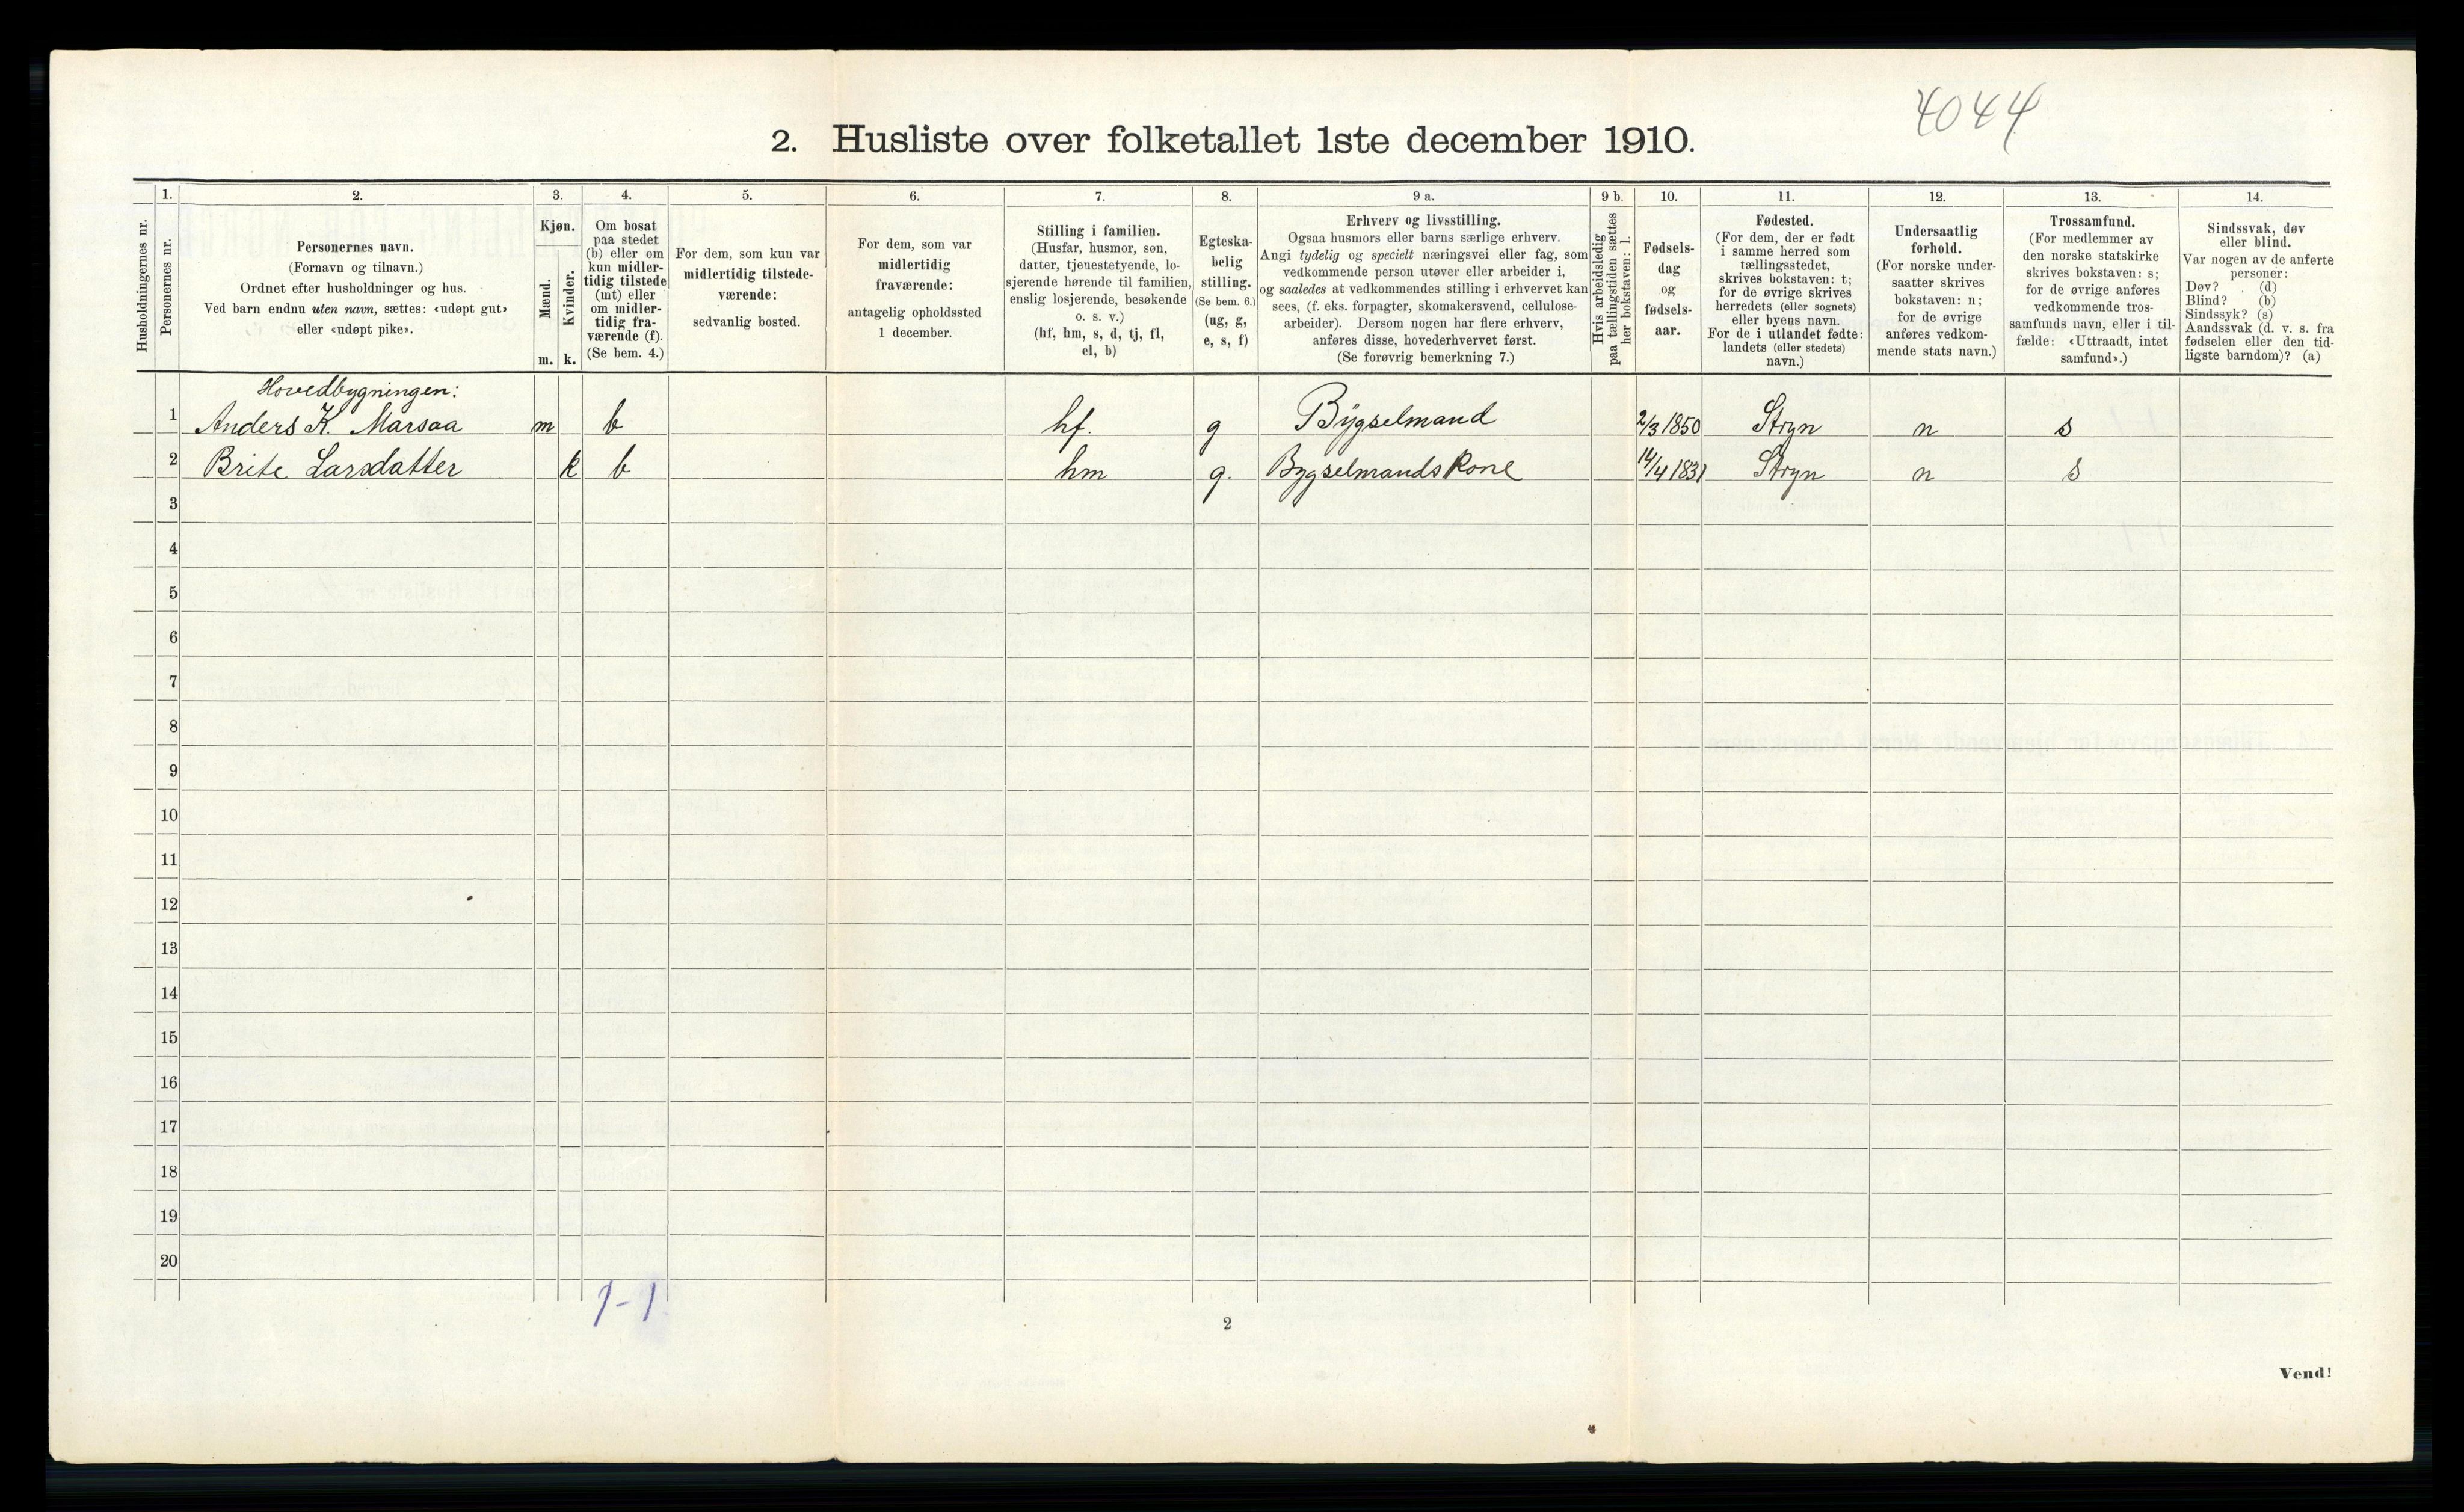 4044
2. Husliste over folketallet 1ste december 1910.
Husholdningernes nr.
1.
Personernes nr.
2.
Personernes navn.
(Fornavn og tilnavn.)
Ordnet efter husholdninger og hus.
Ved barn endnu uten navn, sættes: «udøpt gut»
eller «udøpt pike».
3.
Kjøn.
Mænd.
m.
Kvinder.
k.
4.
Om bosat
paa stedet
(b) eller om
kun midler-
tidig tilstede
(mt) eller
om midler-
tidig fra-
værende (f).
(Se bem. 4.)
5.
For dem, som kun var
midlertidig tilstede-
værende:
sedvanlig bosted.
6.
For dem, som var
midlertidig
fraværende:
antagelig opholdssted
1 december.
7.
Stilling i familien.
(Husfar, husmor, søn,
datter, tjenestetyende, lo-
sjerende hørende til familien,
enslig losjerende, besøkende
o. s. v.)
(hf, hm, s, d, tj, fl,
el, b)
8.
Egteska-
belig
stilling.
(Se bem. 6.)
(ug, g,
e, s, f)
9 a.
Erhverv og livsstilling.
Ogsaa husmors eller barns særlige erhverv.
Angi tydelig og specielt næringsvei eller fag, som
vedkommende person utøver eller arbeider i,
og saaledes at vedkommendes stilling i erhvervet kan
sees, (f. eks. forpagter, skomakersvend, cellulose-
arbeider). Dersom nogen har flere erhverv,
anføres disse, hovederhvervet først.
(Se forøvrig bemerkning 7.)
9 b.
Hvis arbeidsledig
paa tællingstiden sættes
her bokstaven: l.
10.
Fødsels-
dag
og
fødsels-
aar.
11.
Fødested.
(For dem, der er født
i samme herred som
tællingsstedet,
skrives bokstaven: t;
for de øvrige skrives
herredets (eller sognets)
eller byens navn.
For de i utlandet fødte:
landets (eller stedets)
navn.)
12.
Undersaatlig
forhold.
(For norske under-
saatter skrives
bokstaven: n;
for de øvrige
anføres vedkom-
mende stats navn.)
13.
Trossamfund.
(For medlemmer av
den norske statskirke
skrives bokstaven: s;
for de øvrige anføres
vedkommende tros-
samfunds navn, eller i til-
fælde: «Uttraadt, intet
samfund».)
14.
Sindssvak, døv
eller blind.
Var nogen av de anførte
personer:
Døv? . (d)
Blind? (b)
Sindssyk? (s)
Aandssvak (d. v. s. fra
fødselen eller den tid-
ligste barndom)? (a)
Hovedbygningen:
1 Anders K. Marsaa m b hf. g Bygselmand 2/3 1850 Stryn n s
2 Brite Larsdatter k b hm g. Bygselmands Kone 14/4 1831 Stryn n s
3
4
5
6
7
8
9
10
11
12
13
14
15
16
17
18
19
20
1-1
2
Vend!